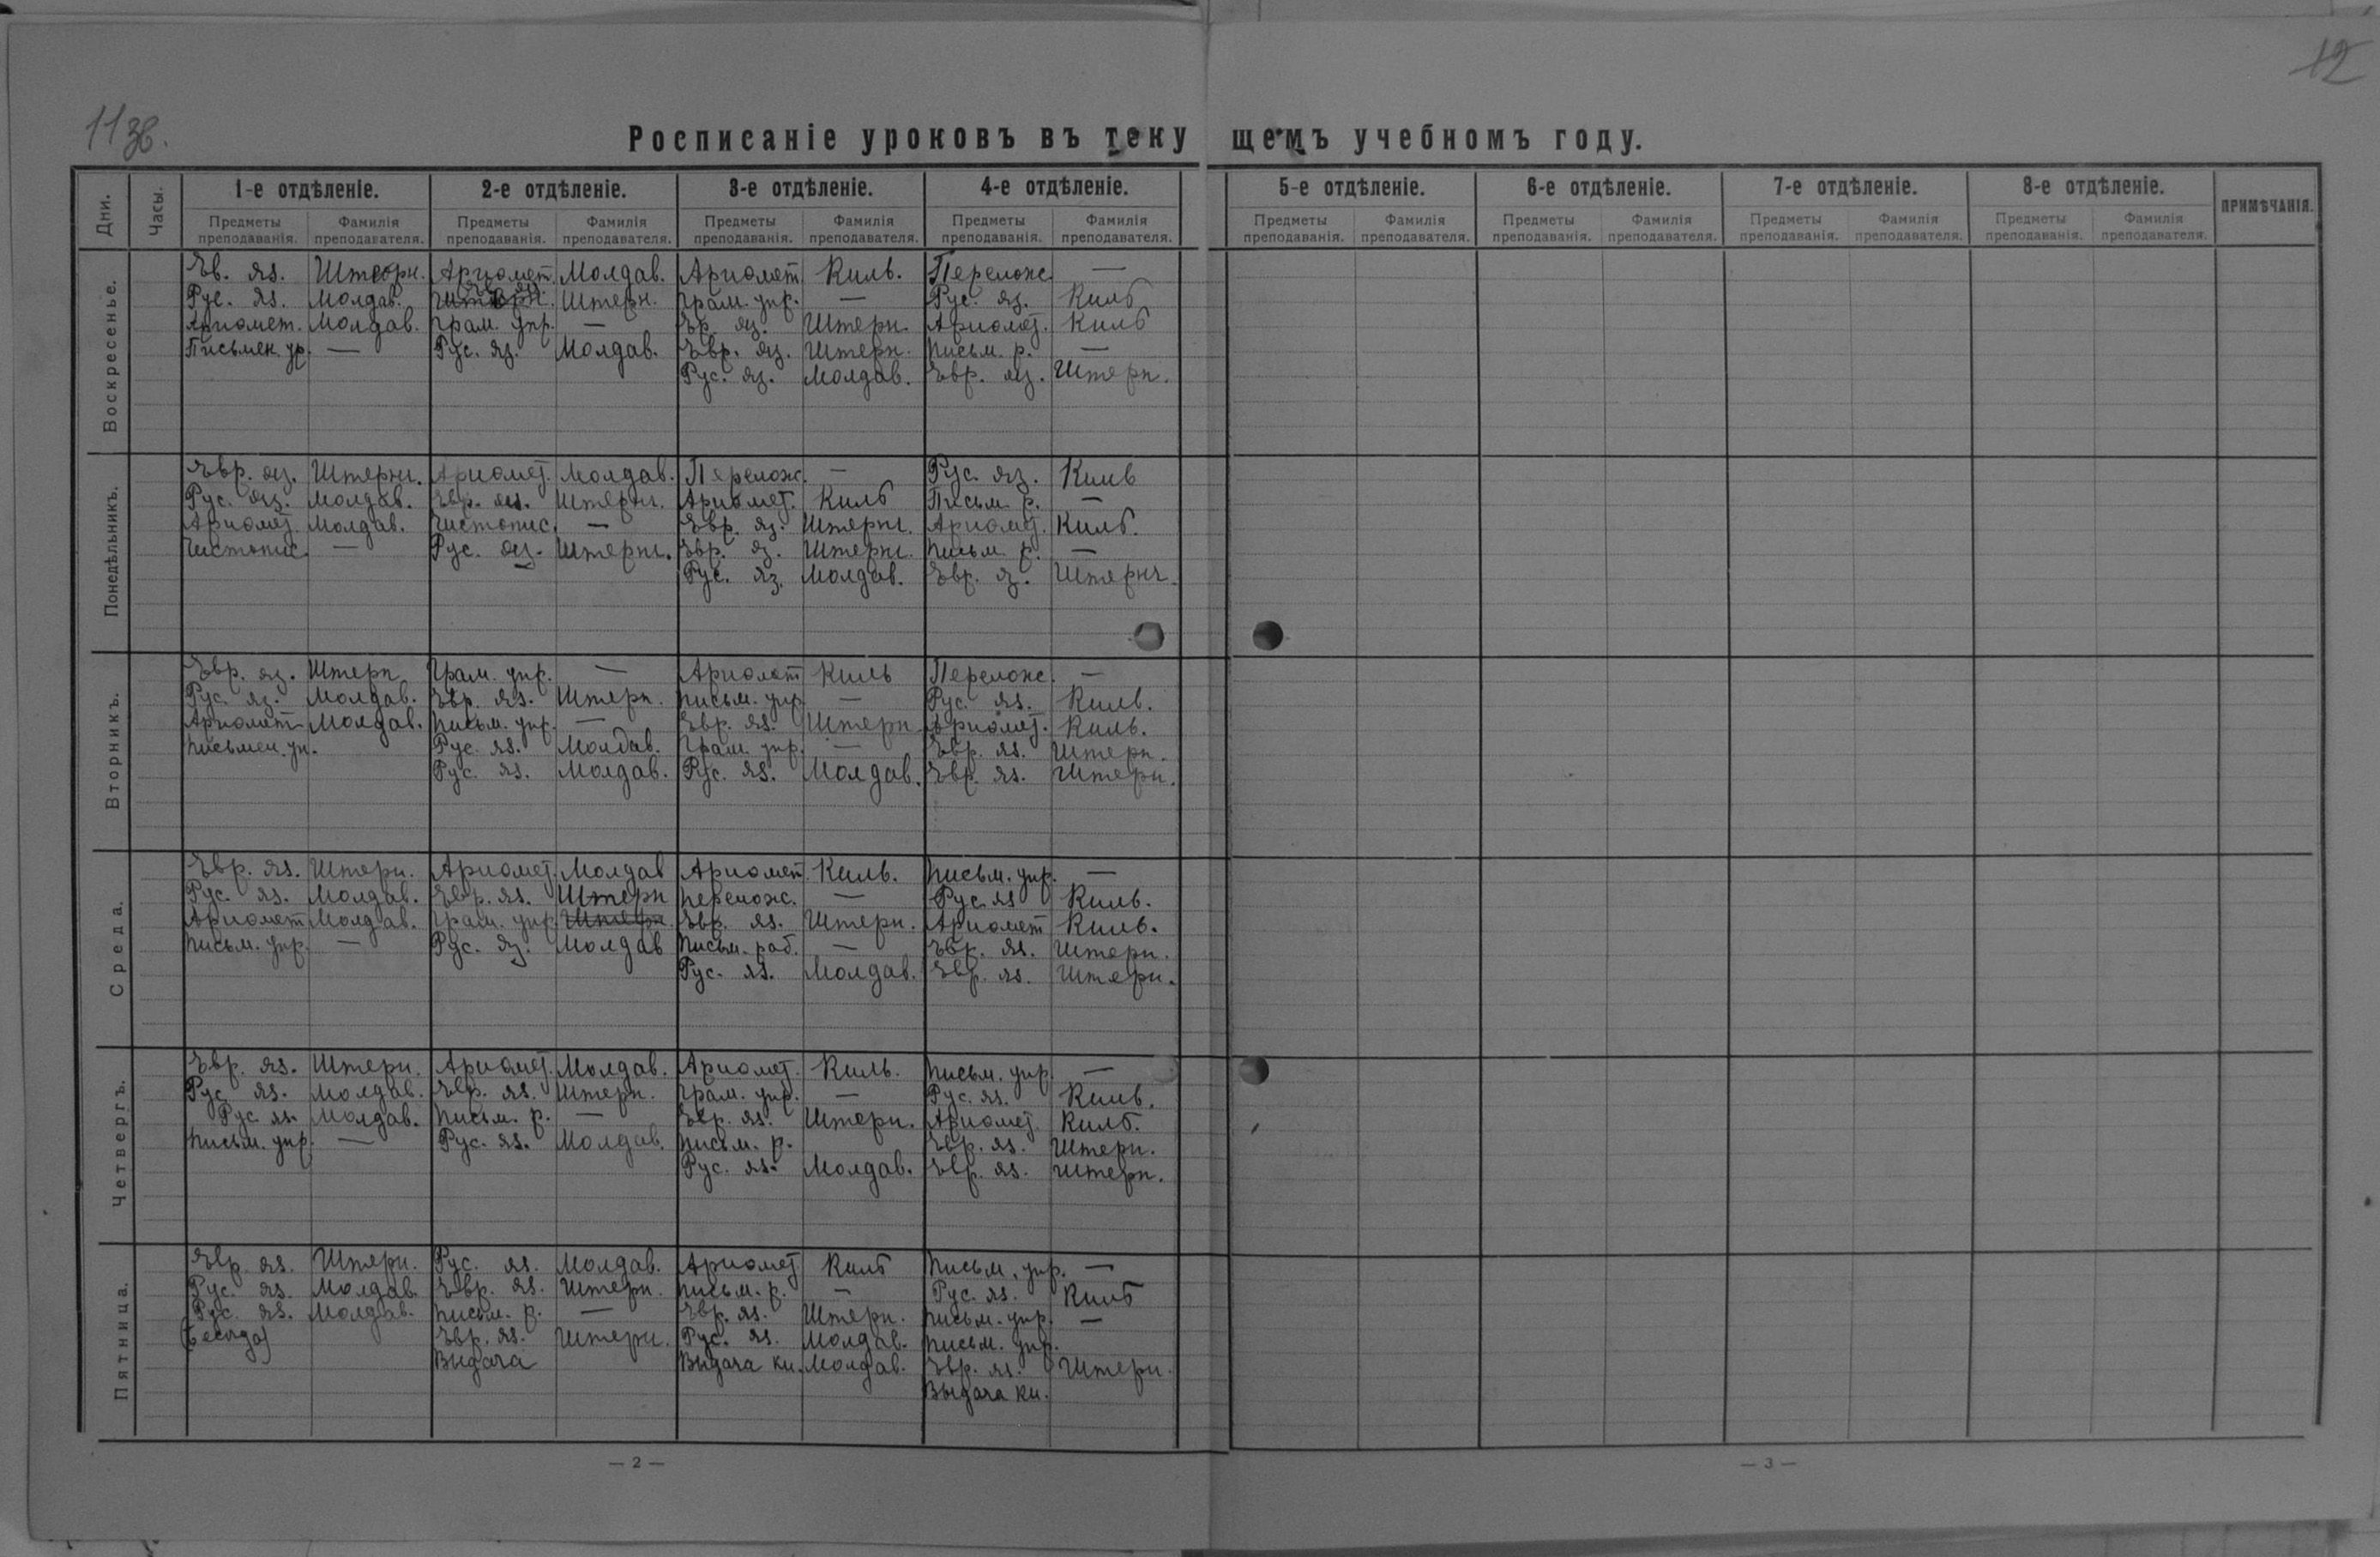 11 зв.
12
Росписаніе уроковъ въ текущемъ учебномъ году.
Дни. Часы. 1-е отдѣленіе. 2-е отдѣленіе. 3-е отдѣленіе. 4-е отдѣленіе. 5-е отдѣленіе. 6-е отдѣленіе. 7-е отдѣленіе. 8-е отдѣленіе. ПРИМѢЧАНІЯ.
Предметы Фамилія Предметы Фамилія Предметы Фамилія Предметы Фамилія Предметы Фамилія Предметы Фамилія Предметы Фамилія Предметы Фамилія
преподаванія. преподавателя. преподаванія. преподавателя. преподаванія. преподавателя. преподаванія. преподавателя. преподаванія. преподавателя. преподаванія. преподавателя. преподаванія. преподавателя. преподаванія. преподавателя.
Воскресенье.
Ев. яз. Штерн. Ариѳмет. Молдав. Ариѳмет Киль. Перелож. —
Рус. яз. Молдав. Штерн. Грам. упр. — Рус. яз. Киль
Ариѳмет. Молдав. Грам. упр. — Ев. яз. Штерн. Ариѳмет. Киль
Письмен. ур. — Рус. яз. Молдав. Евр. яз. Штерн. Письм. р. —
Рус. яз. Молдав. Евр. яз. Штерн.
Понедѣльникъ.
Евр. яз. Штерн. Ариѳмет. Молдав. Перелож. — Рус. яз. Киль
Рус. яз. Молдав. Евр. яз. Штерн. Ариѳмет. Киль Письм. р. —
Ариѳмет. Молдав. Чистопис. — Евр. яз. Штерн. Ариѳмет. Киль.
Чистопис. — Рус. яз. Штерн. Евр. яз. Штерн. Письм. р. —
Рус. яз. Молдав. Евр. яз. Штерн.
Вторникъ.
Евр. яз. Штерн Грам. упр. — Ариѳмет Киль Перелож. —
Рус. яз. Молдав. Евр. яз. Штерн. Письм. упр. — Рус. яз. Киль.
Ариѳмет Молдав. Письм. упр. — Евр. яз. Штерн. Ариѳмет. Киль.
Письмен. уп. Рус. яз. Молдав. Грам. упр. — Евр. яз. Штерн.
Рус. яз. Молдав. Рус. яз. Молдав. Евр. яз. Штерн.
Среда.
Евр. яз. Штерн. Ариѳмет. Молдав Ариѳмет. Киль. Письм. упр. —
Рус. яз. Молдав. Евр. яз. Штерн Перелож. — Рус. яз Киль.
Ариѳмет Молдав. Грам. упр. Штерн Евр. яз. Штерн. Ариѳмет Киль.
Письм. упр. — Рус. яз. Молдав Письм. раб. — Евр. яз. Штерн.
Рус. яз. Молдав. Евр. яз. Штерн.
Четвергъ.
Евр. яз. Штерн. Ариѳмет. Молдав. Ариѳмет. Киль. Письм. упр. —
Рус яз. Молдав. Евр. яз. Штерн. Грам. упр. — Рус. яз. Киль.
Рус яз. Молдав. Письм. р. — Евр. яз. Штерн. Ариѳмет. Киль.
Письм. упр. — Рус. яз. Молдав. Письм. р. Евр. яз. Штерн.
Рус. яз. Молдав. Евр. яз. Штерн.
Пятница.
Евр. яз. Штерн. Рус. яз. Молдав. Ариѳмет Киль Письм. упр. —
Рус. яз. Молдав. Евр. яз. Штерн. Письм. р. — Рус. яз. Киль
Рус. яз. Молдав. Письм. р. — Евр. яз. Штерн. Письм. упр. —
(Бесѣда) Евр. яз. Штерн. Рус. яз. Молдав. Письм. упр.
Выдача Выдача кн. Молдав. Евр. яз. Штерн.
Выдача кн.
— 2 —
— 3 —